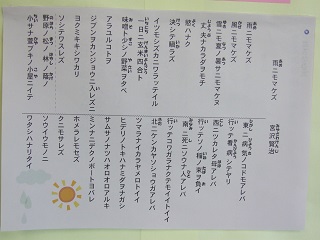 雨ニモマケズ
宮沢賢治
雨ニモマケズ
風ニモマケズ
雪ニモ夏ノ暑サニモマケヌ
丈夫ナカラダヲモチ
慾ハナク
決シテ瞋ラズ
イツモシズカニワラッテイル
一日ニ玄米四合ト
味噌ト少シノ野菜ヲタベ
アラユルコトヲ
ジブンヲカンジョウニ入レズニ
ヨクミキキシワカリ
ソシテワスレズ
野原ノ松ノ林ノ蔭ノ
小サナ萱ブキノ小屋ニイテ
東ニ病気ノコドモアレバ
行ッテ看病シテヤリ
西ニツカレタ母アレバ
行ッテソノ稲ノ束ヲ負イ
南ニ死ニソウナ人アレバ
行ッテコワガラナクテモイイトイイ
北ニケンカヤソショウガアレバ
ツマラナイカラヤメロトイイ
ヒデリノトキハナミダヲナガシ
サムサノナツハオロオロアルキ
ミンナニデクノボートヨバレ
ホメラレモセズ
クニモサレズ
ソウイウモノニ
ワタシハナリタイ